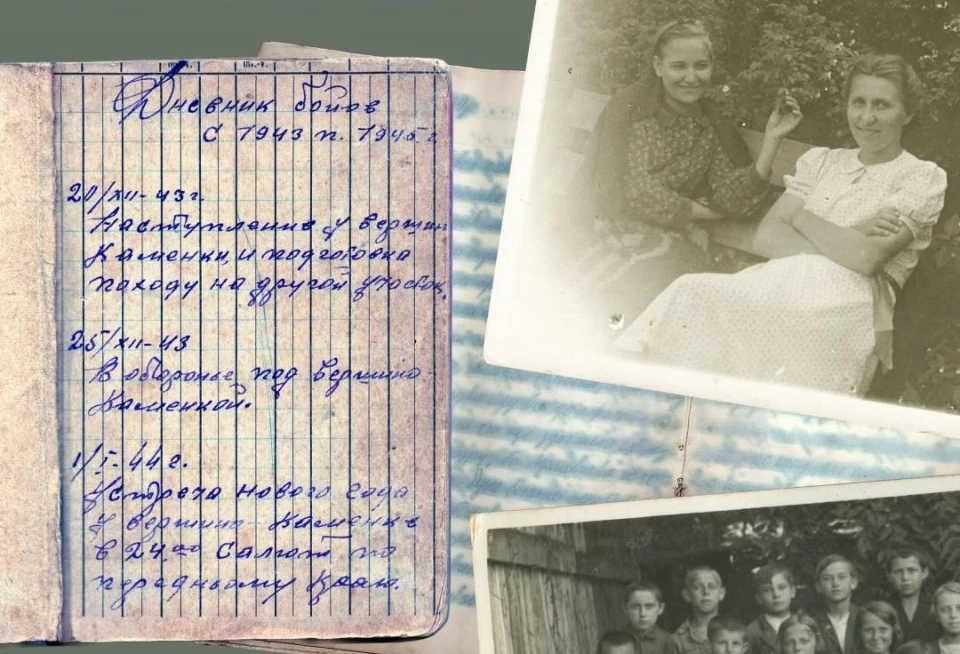 Дневник бойов
с 1943 п. 1945 г.
20/XII-43г.
Наступление у вершин
Каменки, и подготовка
походу на другой участок.
25/XII-43
В оборонье под вершино-
Каменкой.
1/I-44 г.
Устреча нового года
у вершино-Каменке
в 24.00 салют по
передньому краю.